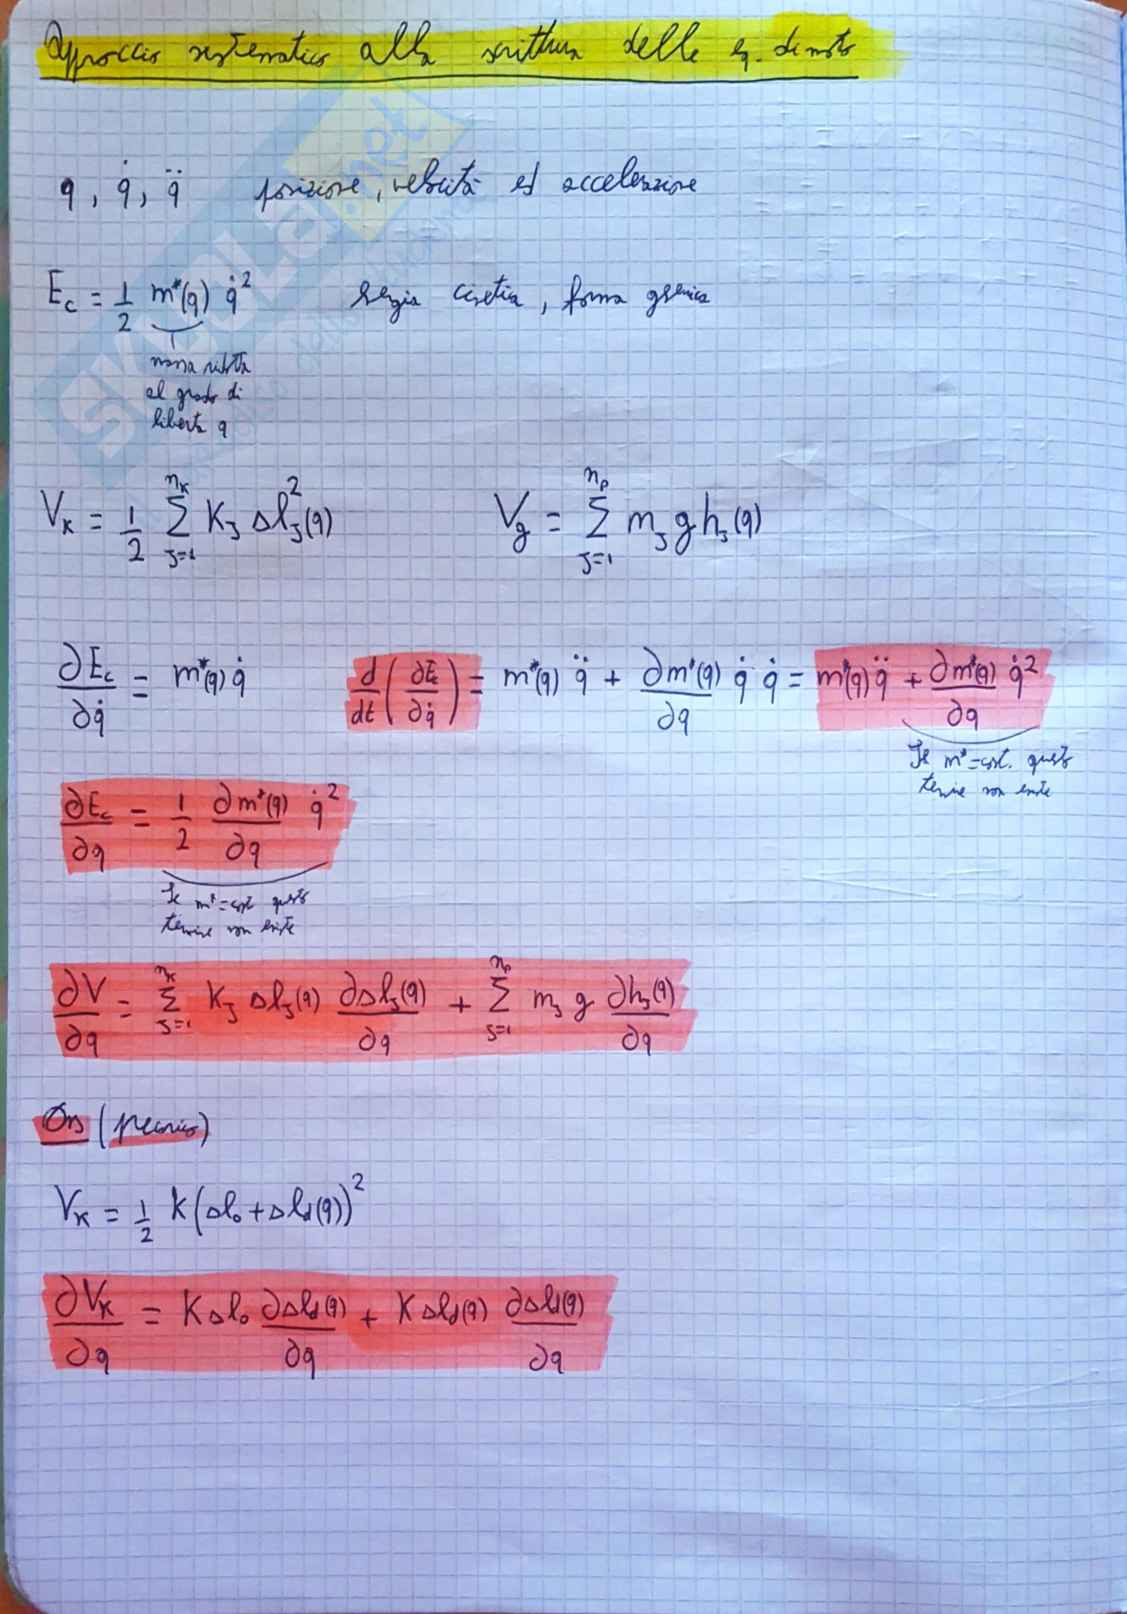 Approccio sistematico alla scrittura delle eq. di moto
q, q̇, q̈ posizione, velocità ed accelerazione
E_c = 1/2 m*(q) q̇² energia cinetica, forma generica
massa ridotta
al grado di
libertà q
V_k = 1/2 Σ_{j=1}^{n_k} K_j Δl_j²(q) V_g = Σ_{j=1}^{n_p} m_j g h_j(q)
∂E_c/∂q̇ = m*(q) q̇ d/dt (∂E_c/∂q̇) = m*(q) q̈ + ∂m*(q)/∂q q̇ q̇ = m*(q) q̈ + ∂m*(q)/∂q q̇²
Se m*=cost. questo
termine non esiste
∂E_c/∂q = 1/2 ∂m*(q)/∂q q̇²
Se m*=cost questo
termine non esiste
∂V/∂q = Σ_{j=1}^{n_k} K_j Δl_j(q) ∂Δl_j(q)/∂q + Σ_{j=1}^{n_p} m_j g ∂h_j(q)/∂q
Oss (precarico)
V_k = 1/2 K(Δl₀+Δl_d(q))²
∂V_k/∂q = KΔl₀ ∂Δl_d(q)/∂q + KΔl_d(q) ∂Δl_d(q)/∂q
SKUOLA.net